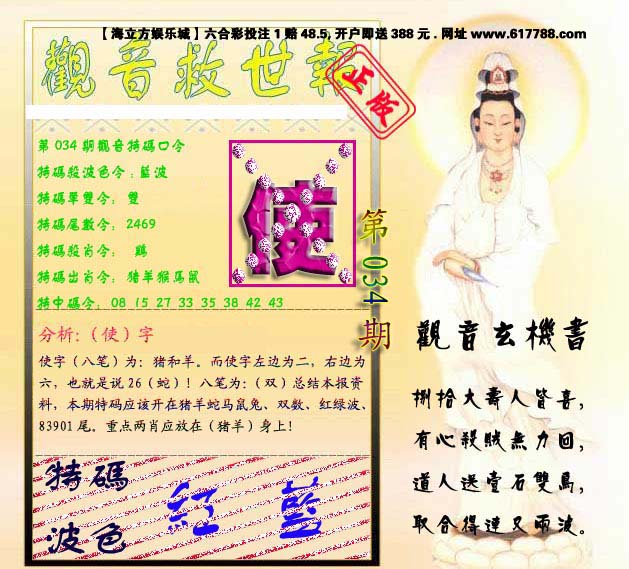 【海立方娱乐城】六合彩投注1赔48.5,开户即送388元.网址www.617788.com
觀音救世報
正版
第034期觀音特碼口令
特碼殺波色令:藍波
特碼單雙令: 雙
特碼尾數令: 2469
特碼殺肖令: 鷄
特碼出肖令: 豬羊猴馬鼠
特中碼令: 08 15 27 33 35 38 42 43
使
第034期
分析:(使)字
使字(八笔)为:猪和羊。而使字左边为二,右边为
六,也就是说26(蛇)!八笔为:(双)总结本报资
料,本期特码应该开在猪羊蛇马鼠兔、双数、红绿波、
83901尾。重点两肖应放在(猪羊)身上!
特碼
波色
紅 藍
觀音玄機書
捌拾大壽人皆喜,
有心殺賊無力回,
道人送壹石雙鳥,
取合得連又兩波。